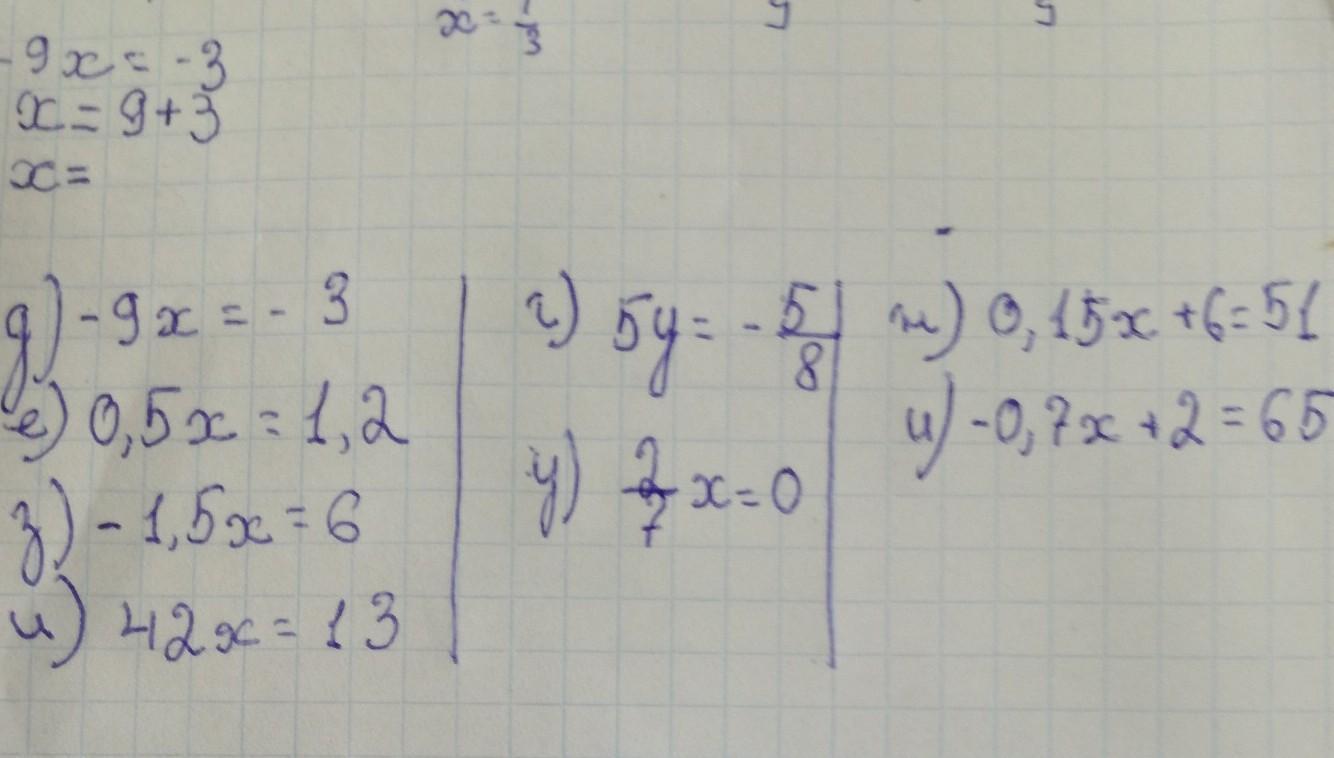 x = 1/3
-9x = -3
x = 9 + 3
x =
д) -9x = - 3
е) 0,5x = 1,2
з) -1,5x = 6
и) 42x = 13
г) 5y = - 5/8
у) 2/7 x = 0
ж) 0,15x + 6 = 51
и) -0,7x + 2 = 65